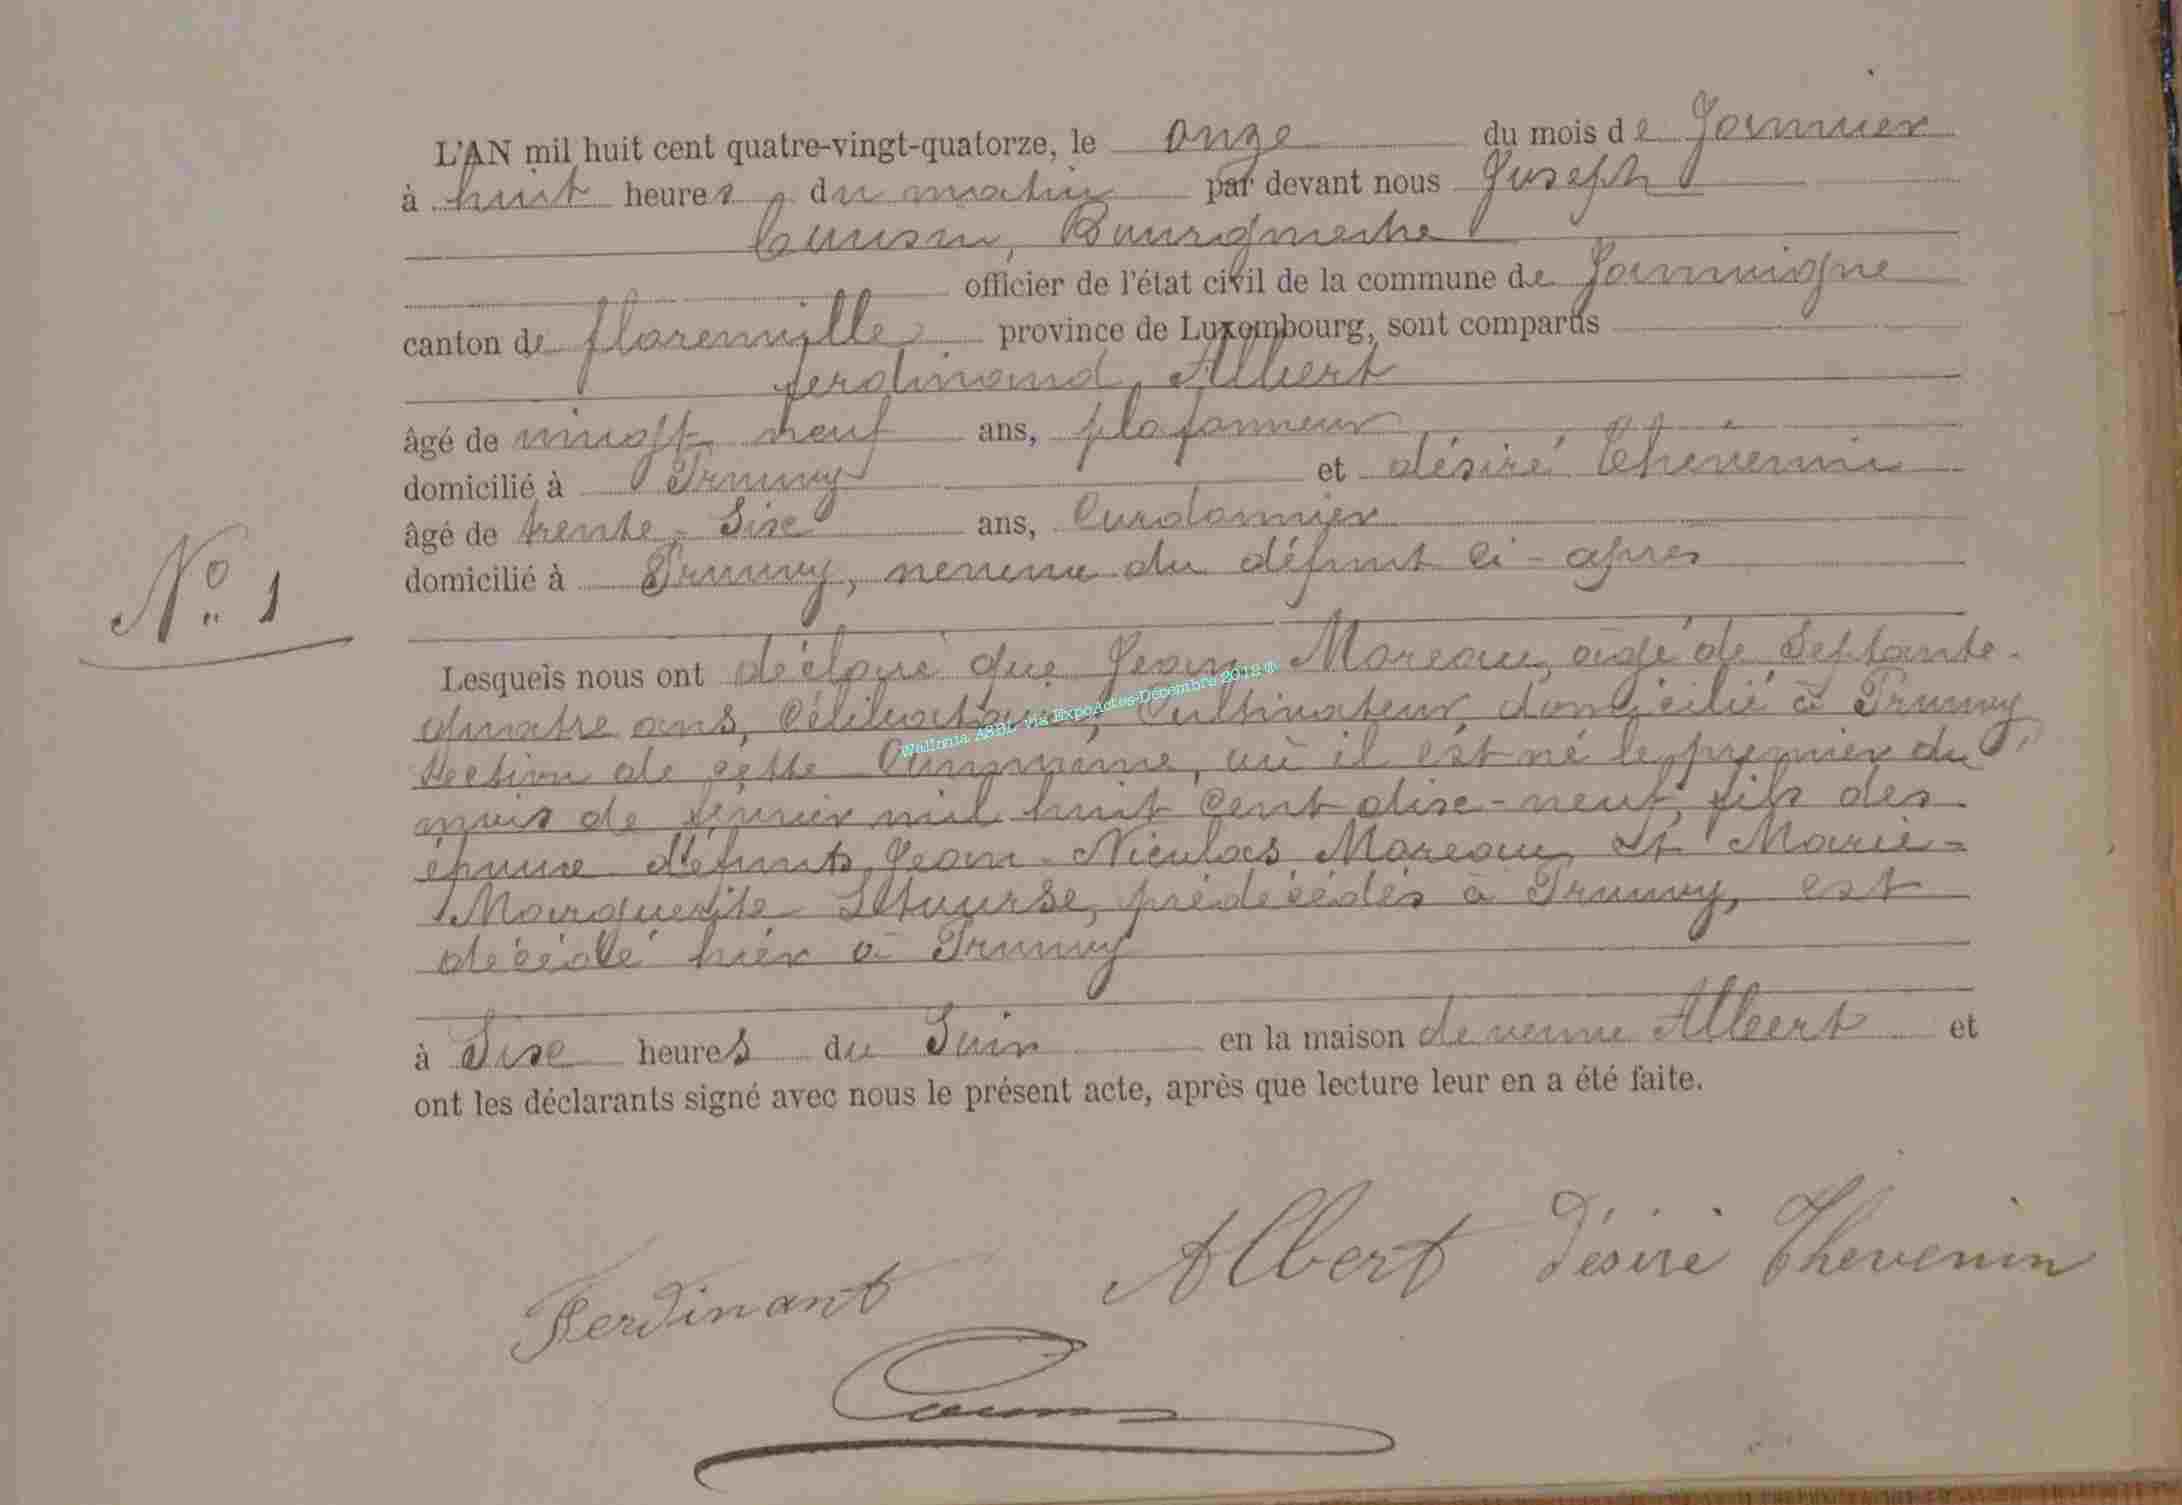 L'AN mil huit cent quatre-vingt-quatorze, le onze du mois de Janvier
à huit heures du matin par devant nous Joseph
Bourgmestre
officier de l'état civil de la commune de Jamoigne
canton de florenville province de Luxembourg, sont comparus
ferdinand Albert
âgé de vingt-neuf ans, plafonneur
domicilié à Prouvy et désiré Thévenin
âgé de trente-Six ans, Cordonnier
domicilié à Prouvy, neveux du défunt ci-après
N° 1
Lesquels nous ont déclaré que Jean Moreau, agé de Septante-
quatre ans, Célibataire, Cultivateur, domicilié à Prouvy
Section de cette Commune, où il est né le premier du
mois de février mil huit Cent dixe-neuf, fils des
époux défunts Jean-Nicolas Moreau et Marie-
Marguerite prédécédés à Prouvy, est
décédé hier à Prouvy
à Six heures du Soir en la maison de veuve Albert et
ont les déclarants signé avec nous le présent acte, après que lecture leur en a été faite.
Ferdinant Albert Désiré Thevenin
Wallonia ASBL via ExpoActes-Décembre 2012 ®